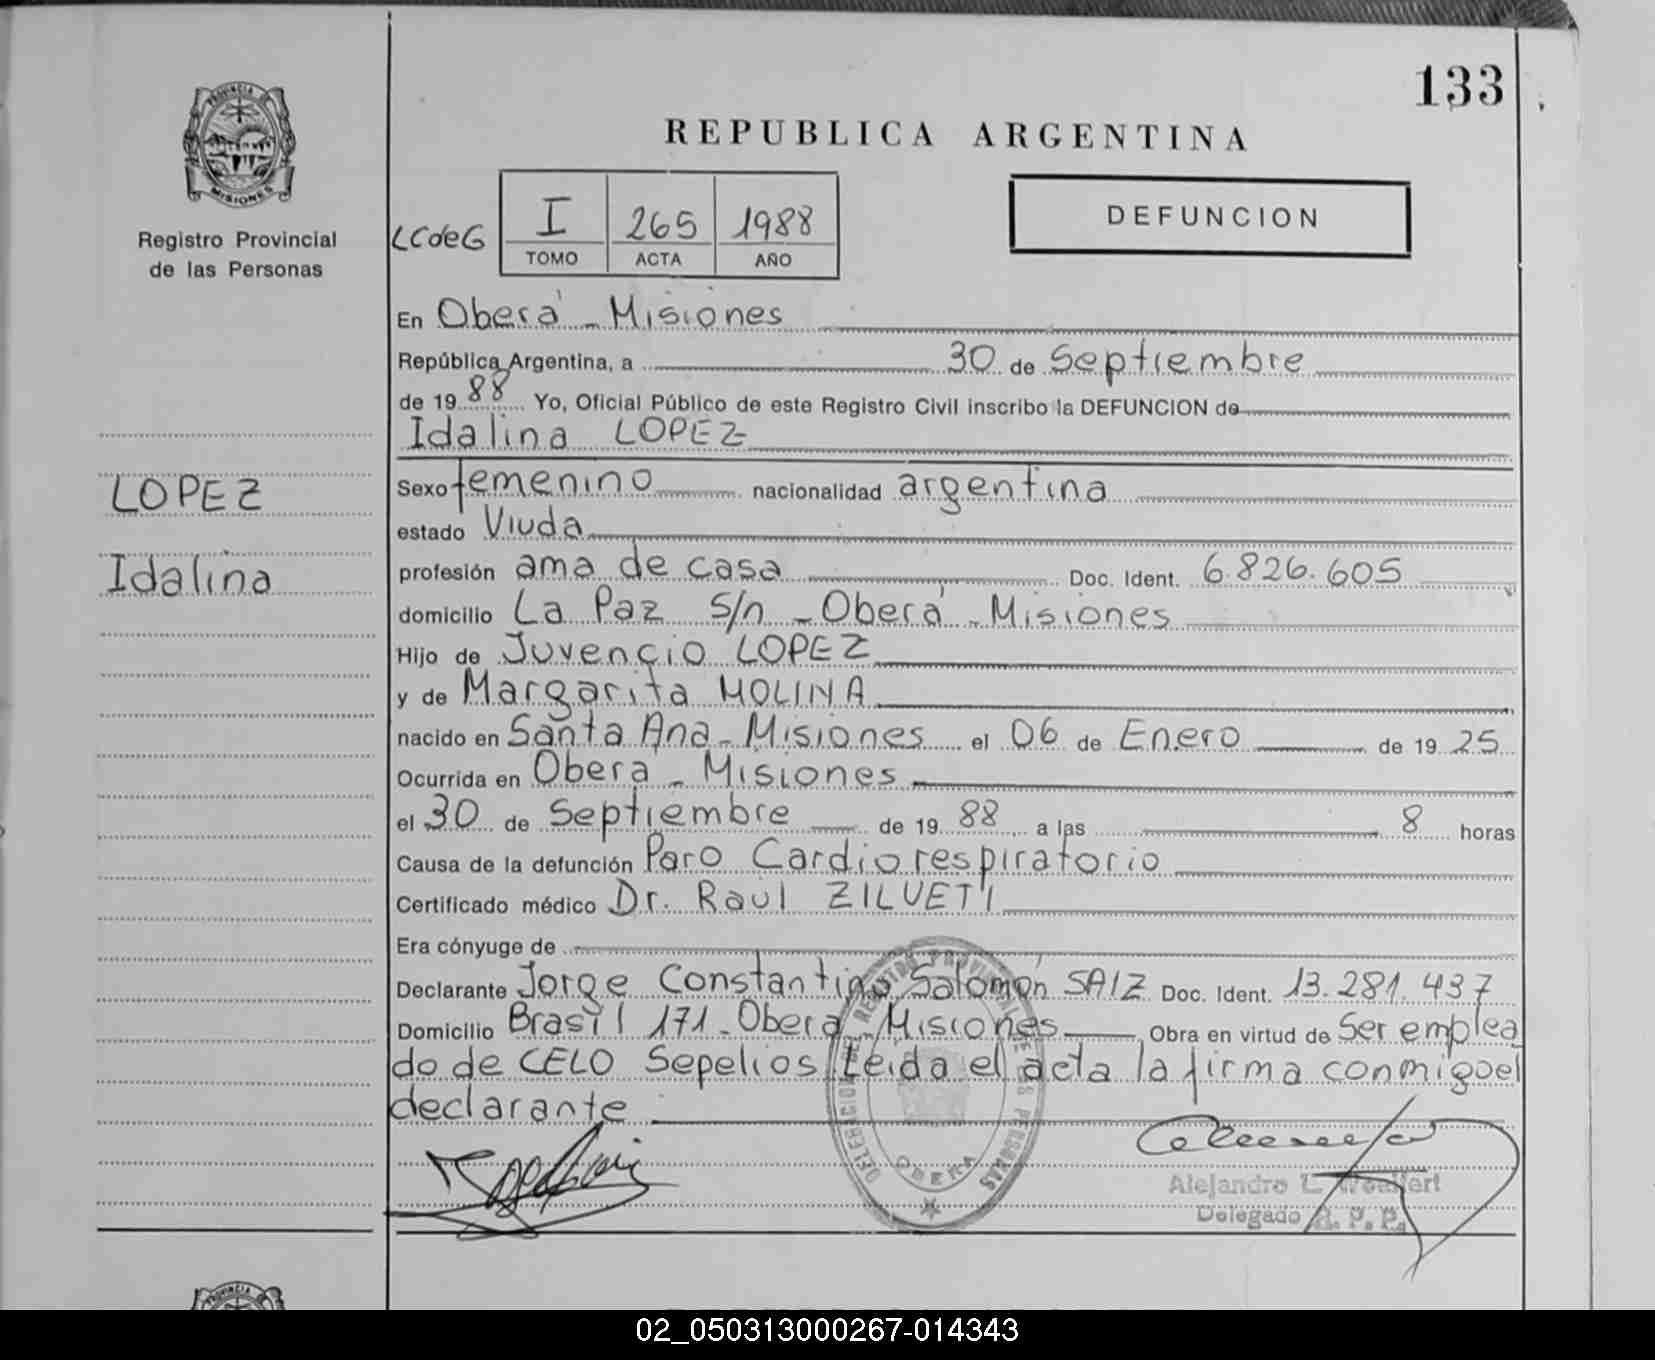 133
PROVINCIA DE
MISIONES
Registro Provincial
de las Personas
REPUBLICA ARGENTINA
LCdeG
I 265 1988
TOMO ACTA AÑO
DEFUNCION
En Oberá - Misiones
República Argentina, a 30 de Septiembre
de 1988 Yo, Oficial Público de este Registro Civil inscribo la DEFUNCION de
Idalina LOPEZ
LOPEZ
Idalina
Sexo femenino nacionalidad argentina
estado Viuda
profesión ama de casa Doc. Ident. 6.826.605
domicilio La Paz S/n - Oberá - Misiones
Hijo de Juvencio LOPEZ
y de Margarita MOLINA
nacido en Santa Ana - Misiones el 06 de Enero de 1925
Ocurrida en Oberá - Misiones
el 30 de Septiembre de 1988 a las 8 horas
Causa de la defunción Paro Cardiorespiratorio
Certificado médico Dr. Raúl ZILVETI
Era cónyuge de
Declarante Jorge Constantino Salomón SAIZ Doc. Ident. 13.281.437
Domicilio Brasil 171 - Oberá Misiones Obra en virtud de Ser emplea
do de CELO Sepelios Leida el acta la firma conmigo el
declarante
DELEGACION DEL REGISTRO PROVINCIAL DE LAS PERSONAS
OBERA
Alejandro L.
Delegado R. P. P.
PROVINCIA DE
02_050313000267-014343